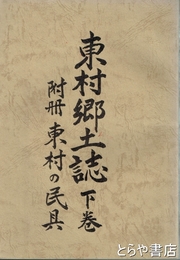 東村郷土誌 下巻
附冊 東村の民具
とらや書店